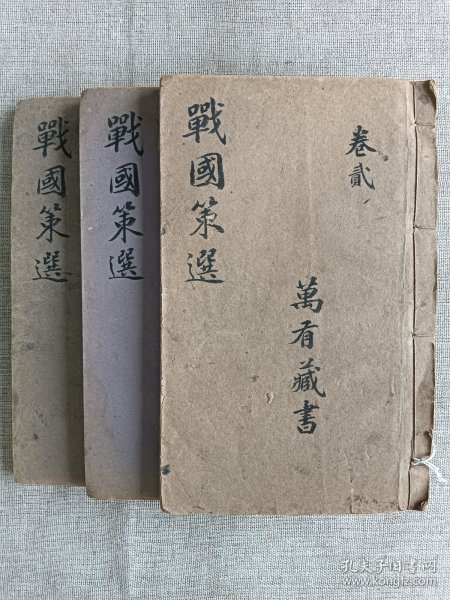 卷貳
萬有藏書
戰國策選
戰國策選
戰國策選
孔夫子旧书网
www.kongfz.com